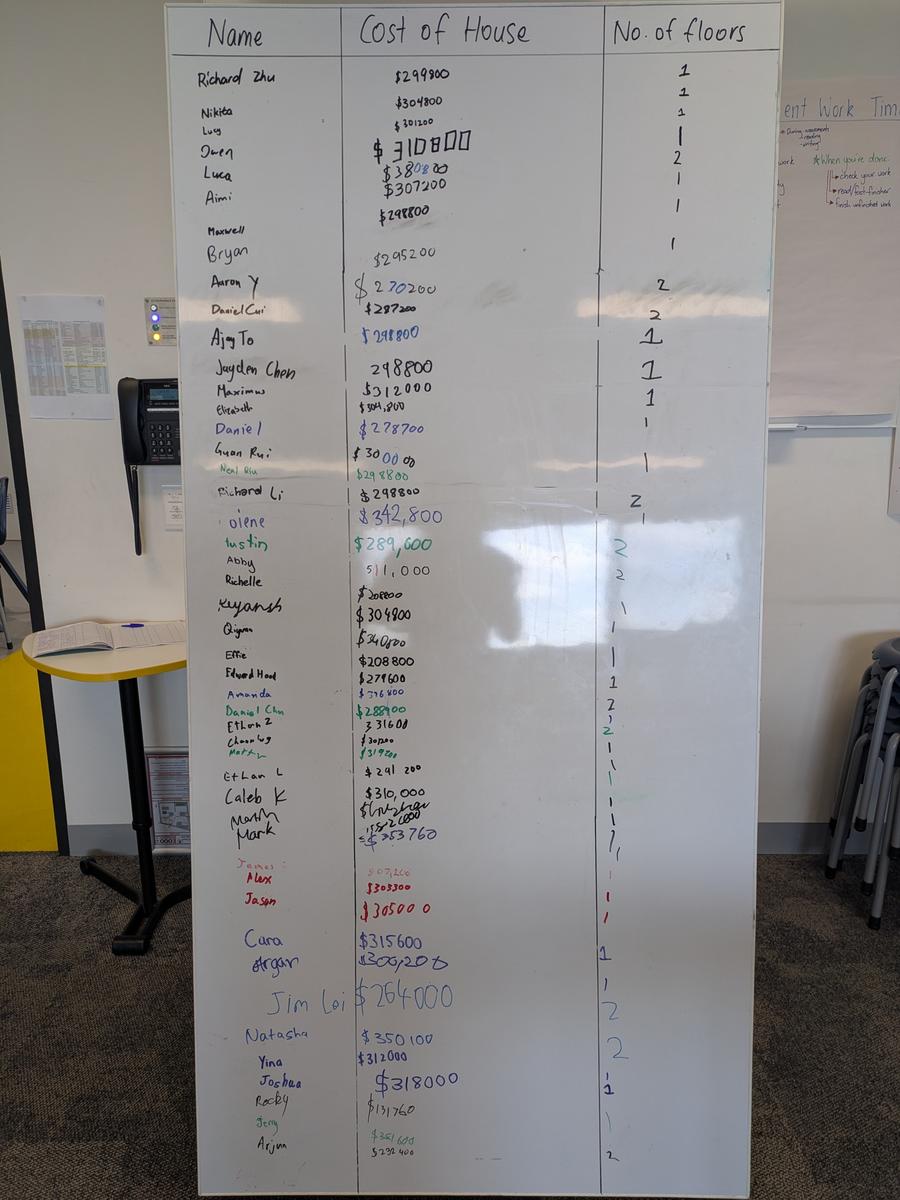 Name Cost of House No. of floors
Richard Zhu $299800 1
Nikita $304800 1
Lucy $301200 1
Owen $310800 1
Luca $380800 2
Aimi $307200 1
Maxwell $298800 1
Bryan $295200 1
Aaron Y $270200 2
Daniel Cui $287200 2
Ajay To $298800 1
Jayden Chen 298800 1
Maximus $312000 1
Elizabeth $304,800
Daniel $278700 1
Guan Rui $300000
Neal $298800 1
Richard Li $298800 2
olene $342,800 1
$289,600 2
Abby 511,000
Richelle $208800 2
$304800 1
$340800 1
Effie $208800 1
Edward $279600 1
Amanda $396800 2
Daniel $288900
Ethan Z 331600 2
$319200
Ethan L $291 200 1
Caleb K $310,000 1
Mark $353760
James
Alex $303300 1
Jason $305000 1
Cara $315600 1
$300,200 1
Jim Lai $264000 2
Natasha $350100 2
Yina $312000 1
Joshua $318000 1
Rocky $131760
Jerry $351600 1
Arjun $232400 2
ent Work Tim
During assessments
- reading
- writing
work
When you're done:
check your work
read/fast-finisher
finish unfinished work